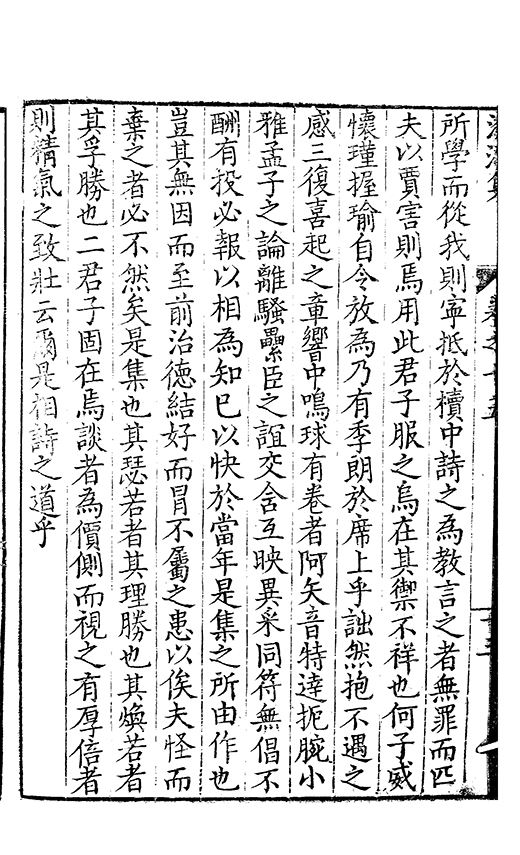 所學而從我則寜抵於櫝中詩之為教言之者無罪而匹
夫以賈害則焉用此君子服之烏在其禦不祥也何子威
懷瑾握瑜自令放為乃有季朗於席上乎詘然抱不遇之
感三復喜起之章響中鳴球有卷者阿矢音特達扼腕小
雅孟子之論離騷纍臣之誼交舍互映異采同符無倡不
酬有投必報以相為知巳以快於當年是集之所由作也
豈其無因而至前治德結好而冐不屬之患以俟夫怪而
棄之者必不然矣是集也其瑟若者其理勝也其煥若者
其孚勝也二君子固在焉談者為價側而視之有厚倍者
則精氣之致壯云爾是相詩之道乎